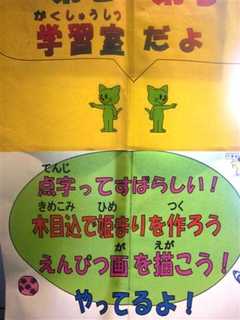 がくしゅうしつ
学習室だよ
でんじ
点字ってすばらしい！
きめこみ ひめ つく
木目込で姫まりを作ろう
が えが
えんぴつ画を描こう！
やってるよ！